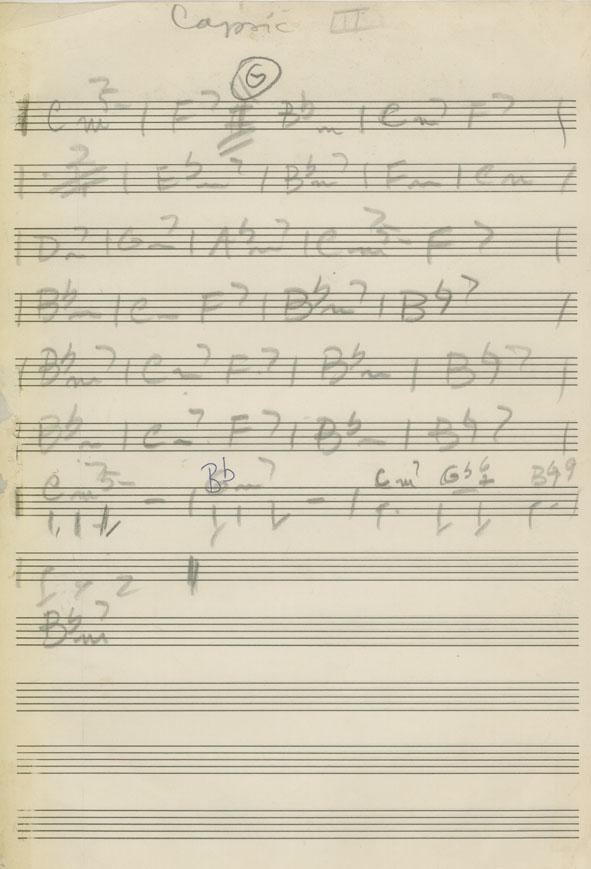 Capric III
G
Cm7 5- | F7 B♭m | Cm7 F7 |
| E♭m7 | B♭m7 | Fm | Cm |
Dm7 | Gm7 | A♭m7 | Cm7 5- F7 |
| B♭m | Cm F7 | B♭m7 | B♮7 |
| B♭m7 | Cm7 F7 | B♭m | B♮7 |
| B♭m | Cm7 F7 | B♭m | B♮7 |
Cm7 5- B♭m7 Cm7 B♮9
B♭m7